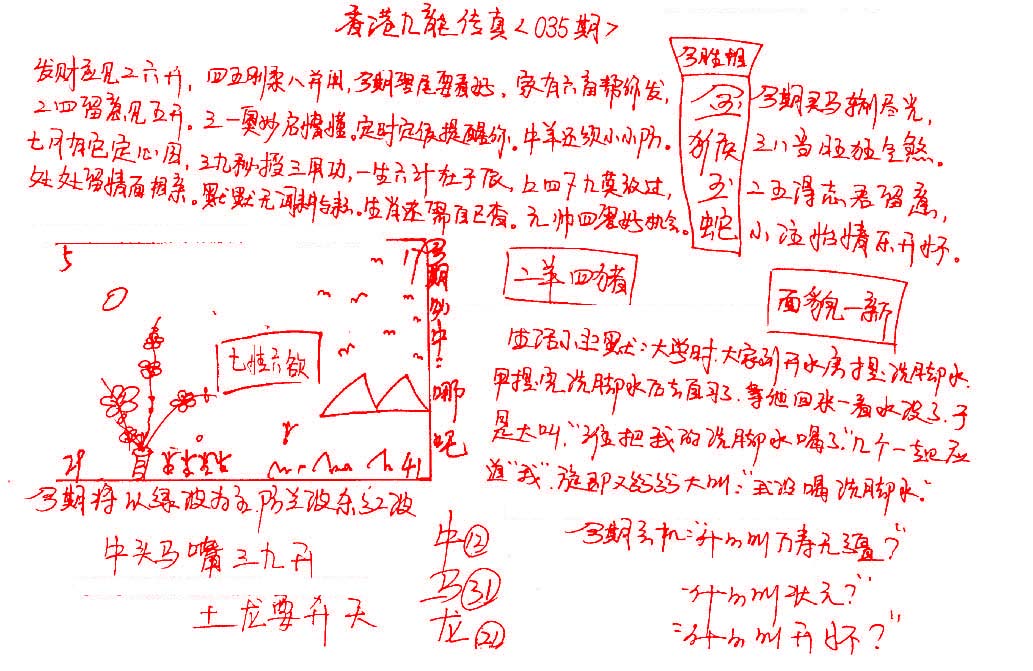 香港九龙传真<035期>
发财应见二六开，四五刚柔八并用，今期零尾要看好，家有六畜帮你发，
二四留意见五开。三一奥妙启懵懂。定时定位提醒你。牛羊还须小小防。
七月有它定心田，三九秒投三用功，一生六计在于辰，上四下九莫放过，
处处留情面相亲。默默无闻耕耘。生肖还需自己查。元帅四零好机会。
今胜相
金猴
玉蛇
今期买马捌尽光，
三八当旺独坐煞。
二五得志君留意，
小注怡情乐开怀。
5
17
29
41
七情六欲
今期必中！哪吒
二羊四猪
面貌一新
生活小幽默：大学时，大家到开水房提洗脚水，
早提完洗脚水后去自习了，等他回来一看水没了，于
是大叫，“谁把我的洗脚水喝了”几个一起应
道“我”，随即又纷纷大叫：“我没喝洗脚水”
今期将以绿波为主，防兰波杀红波
牛头马嘴三九开
土龙要升天
牛⑫
马㉛
龙㉑
今期玄机：“什么叫万寿无疆？”
“什么叫状元？”
“什么叫开怀？”